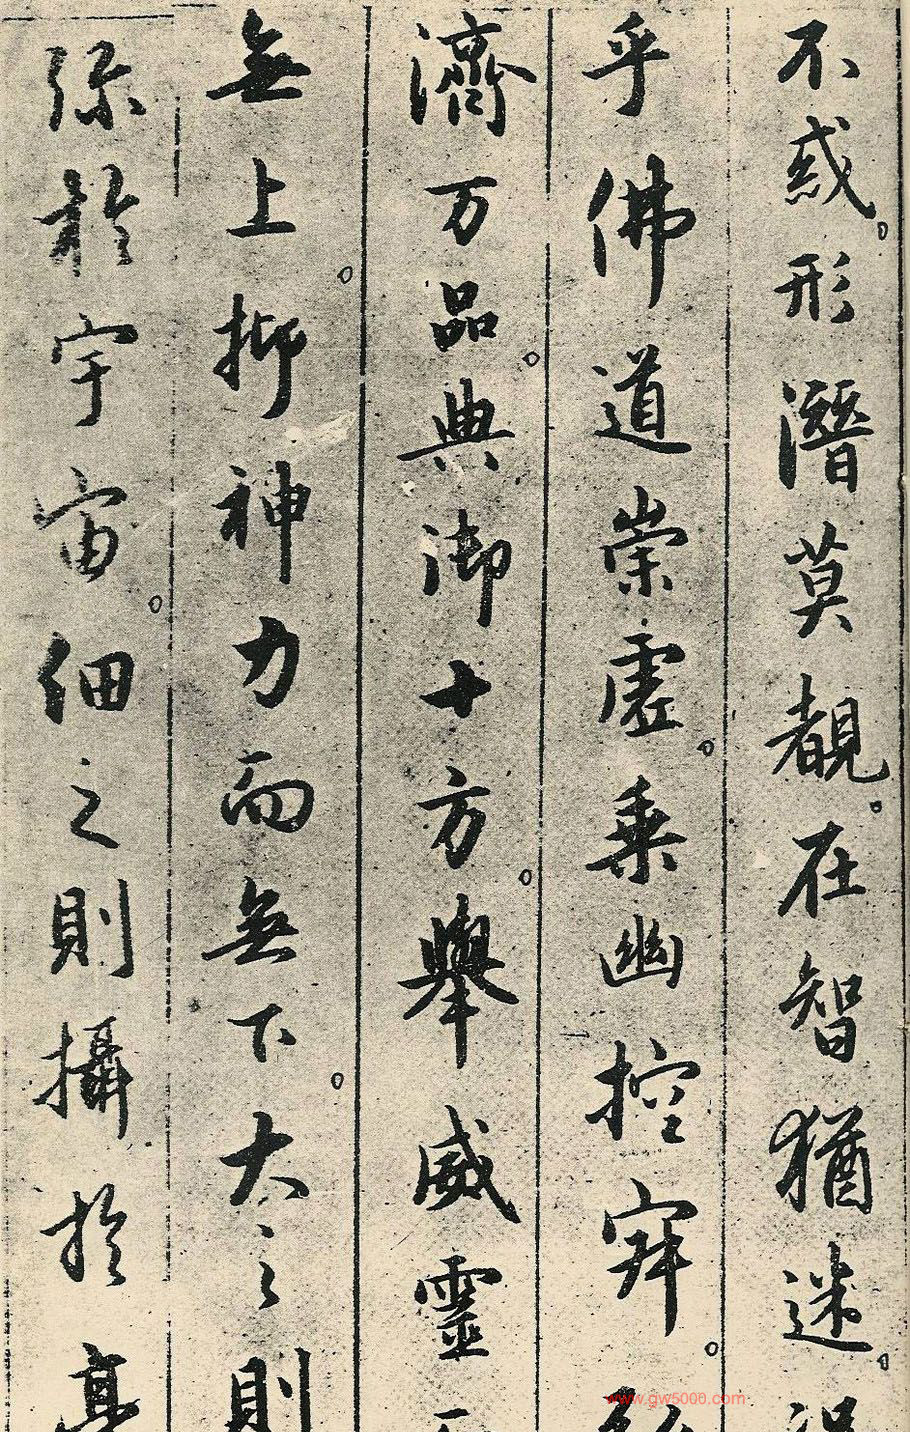 不惑形潛莫覩在智猶迷
乎佛道崇虛乘幽控寂
濟万品典御十方舉威靈
無上抑神力而無下大之則
弥於宇宙細之則攝於
www.gw5000.com